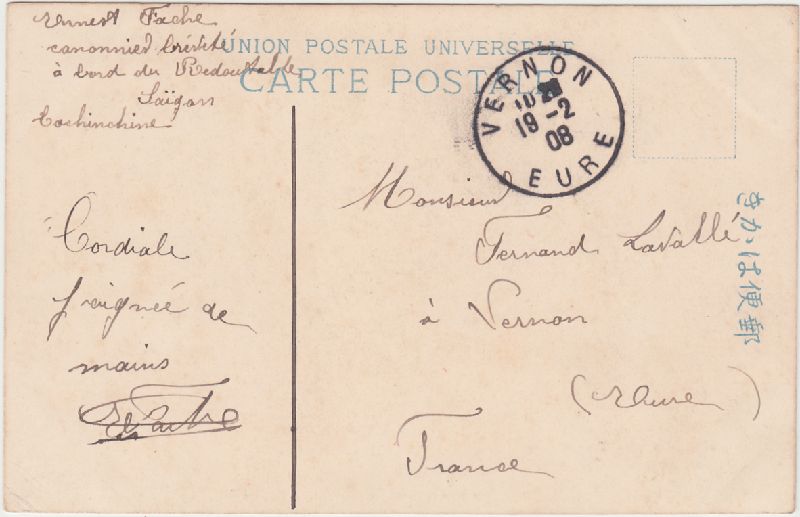 Ernest Fache
canonnier breveté
à bord du Redoutable
Saïgon
Cochinchine
UNION POSTALE UNIVERSELLE
CARTE POSTALE
VERNON
19 -2
08
EURE
Cordiale
poignée de
mains
EFache
Monsieur
Fernand Lavallé
à Vernon
(Eure)
France
きかは便郵